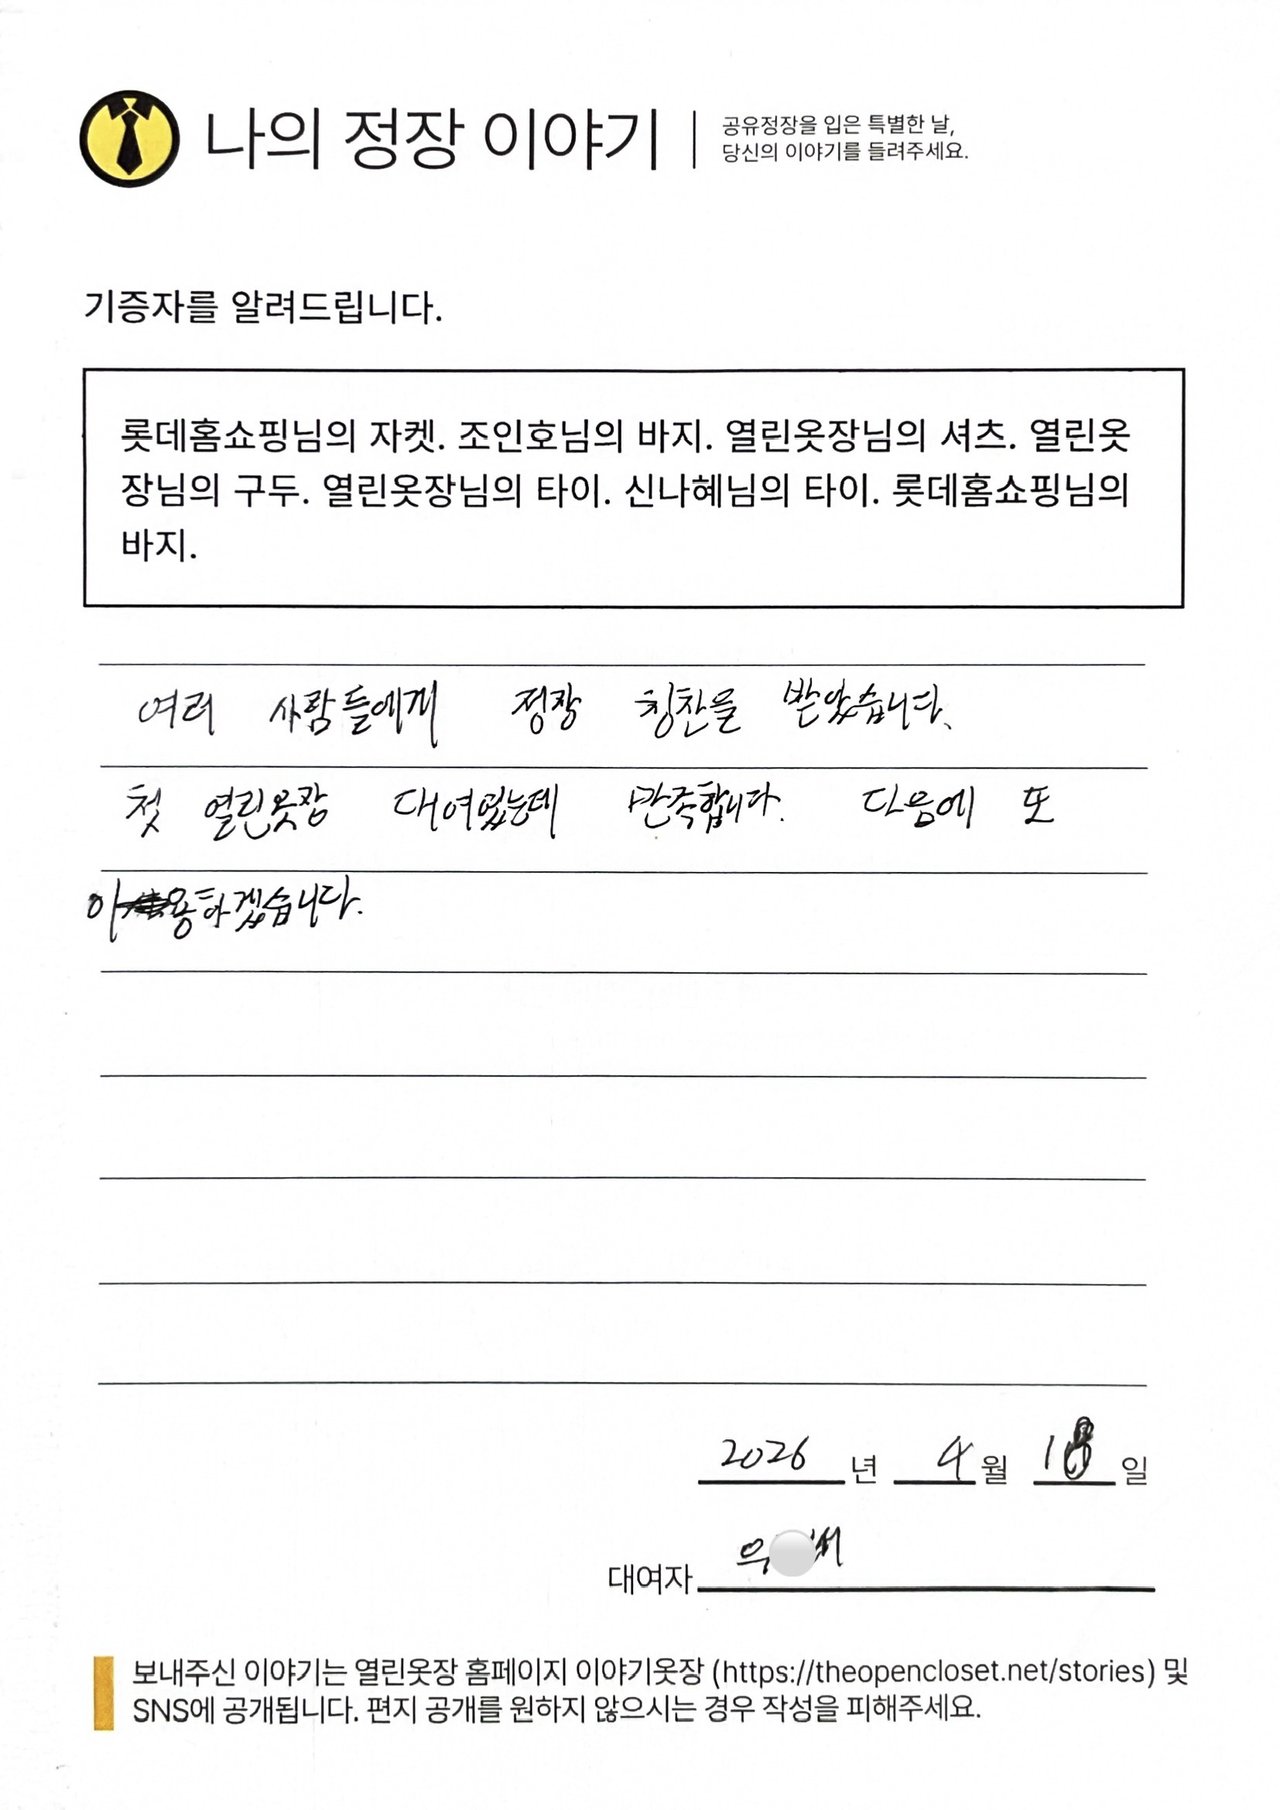 나의 정장 이야기
공유정장을 입은 특별한 날,
당신의 이야기를 들려주세요.
기증자를 알려드립니다.
롯데홈쇼핑님의 자켓. 조인호님의 바지. 열린옷장님의 셔츠. 열린옷
장님의 구두. 열린옷장님의 타이. 신나혜님의 타이. 롯데홈쇼핑님의
바지.
여러 사람들에게 정장 칭찬을 받았습니다.
첫 열린옷장 대여였는데 만족합니다. 다음에 또
이용하겠습니다.
2026 년 4 월 일
대여자
보내주신 이야기는 열린옷장 홈페이지 이야기옷장 (https://theopencloset.net/stories) 및
SNS에 공개됩니다. 편지 공개를 원하지 않으시는 경우 작성을 피해주세요.